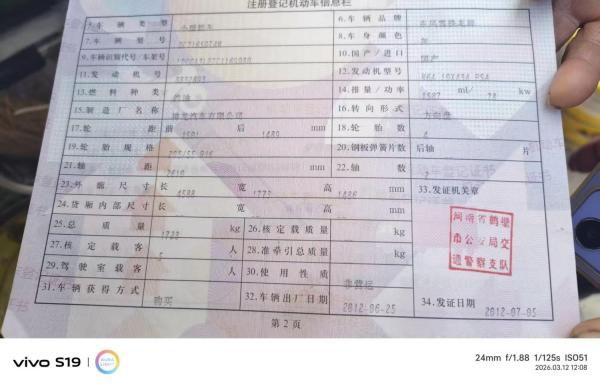 注册登记机动车信息栏
5.车辆类型 小型轿车 6.车辆品牌 东风雪铁龙牌
7.车辆型号 8.车身颜色 灰
9.车辆识别代号/车架号 10.国产/进口 国产
11.发动机号 12.发动机型号
13.燃料种类 汽油 14.排量/功率 1587 ml/ 78 kw
15.制造厂名称 神龙汽车有限公司 16.转向形式 方向盘
17.轮距 前 1501 后 1480 mm 18.轮胎数 4
19.轮胎规格 205/55 R16 20.钢板弹簧片数 后轴 片
21.轴距 2610 mm 22.轴数 2
23.外廓尺寸 长 4588 宽 1772 高 1486 mm 33.发证机关章
24.货厢内部尺寸 长 宽 高 mm
25.总质量 kg 26.核定载质量 kg
27.核定载客 5 人 28.准牵引总质量 kg
29.驾驶室载客 人 30.使用性质 非营运
31.车辆获得方式 购买 32.车辆出厂日期 2012-06-25 34.发证日期 2012-07-05
河南省鹤壁
市公安局交
通警察支队
第2页
vivo S19
24mm f/1.88 1/125s ISO51
2026.03.12 12:08